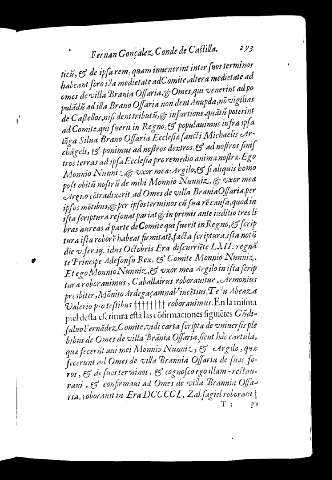 Fernan Gonçalez, Conde de Castilla. 293
ticū, & de ipsa rem, quam invenerint inter suos terminos
habeant foro illa medietate ad Comite, altera medietate ad
omes de villa Brania Ossaria, & Omes, qui venerint ad po
pulādū ad illa Brano Ossaria non dent Anupda, nō vigilias
de Castellos, nisi dent tributū, & infurtione quātū poterint
ad Comite, qui fuerit in Regno, & populavimus infra ipsa
lōga Silva Brano Ossaria Ecclesia sancti Michaelis Ar-
chāgeli, & ponimus ad nostros dextros, & ad nostros sinis
tros terras ad ipsa Ecclesia pro remedio anima nostra. Ego
Monnio Nunniz, & vxor mea Argilo, & si aliquis homo
post obitū nostrū de mihi Monnio Nunniz, & vxor mea
Argilo cōtradixerit ad Omes de villa Brania Ossaria per
ipsos mōtibus, & per ipsos terminos cū sua rē causa, quod in
ista scriptura resonat pariat & in primis ante inditio tres li
bras aureas à parte de Comite qui fuerit in Regno, & scrip
tura ista robor habeat firmitatē, facta scriptura ista notū
die v. fer. 19. idus Octobris Era discurrēte LXII. regnā
te Principe Adefonso Rex, & Comite Monnio Nunniz.
Et ego Monnio Nunniz, & vxor mea Argilo in ista scrip
tura roboravimus, Caballarius roboratur, Armonius
presbiter, Monino Ardega, Zamna
Valerio pro testibus ††††††† roboravimus. En la misma
piel desta escritura està las cōfirmaciones siguiētes Gūdi-
salvo Fernādez Comite, vidi carta scripta de universis ple
bibus de Omes de villa Brānia Ossaria, sicut hac cartula,
qua fecerūt avi mei Monnio Nunniz, & Argilo, qua
fecerunt ad Omes de villa Brannia Ossaria de suos fo-
ros, & de suos terminos, & cognosco ego illam restau-
rani, & confirmavi ad Omes de villa Brannia Ossa-
ria, roboravit in Era DCCCCL. Zalsagiel roborant †
T 3